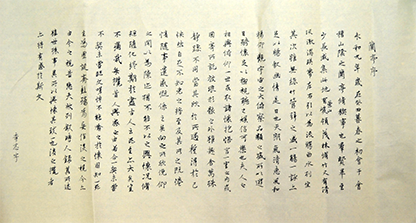 蘭亭序
永和九年歲在癸丑暮春之初會于會
稽山陰之蘭亭脩禊事也群賢畢至
少長咸集此地有崇山峻領茂林脩竹又有清
流激湍暎帶左右引以為流觴曲水列坐
其次雖無絲竹管弦之盛一觴一詠亦
足以暢敘幽情是日也天朗氣清惠風和
暢仰觀宇宙之大俯察品類之盛所以遊
目騁懷足以極視聽之娛信可樂也夫人之
相與俯仰一世或取諸懷抱悟言一室之內或
因寄所託放浪形骸之外雖趣舍萬殊
靜躁不同當其欣於所遇暫得於己
快然自足不知老之將至及其所之既惓
情隨事遷感慨係之矣向之所欣俛仰
之間以為陳迹猶不能不以之興懷況脩
短隨化終期於盡古人云死生亦大矣豈
不痛哉每攬昔人興感之由若合一契未嘗
不臨文嗟悼不能喻之於懷固知一死
生為虛誕齊彭殤為妄作後之視今亦
由今之視昔悲夫故列敘時人錄其所述
雖世殊事異所以興懷其致一也後之攬者
亦將有感於斯文